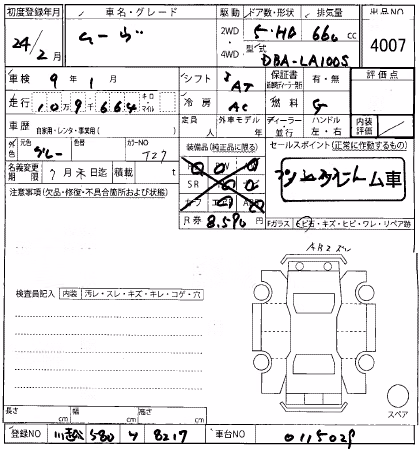 初度登録年月 車名・グレード 駆動 ドア数・形状 排気量 出品NO
24/2月 ムーヴ 2WD・4WD 5・HB 660cc 4007
型式 DBA-LA100S
車検 9年1月 シフト AT 保証書 有・無 評価点
走行 10万9千664 キロ・マイル 冷房 AC 燃料 G
車歴 自家用・レンタ・事業用( ) 定員 人 外車モデル 年 ディーラー・並行 ハンドル 左・右 内装評価
外色 元色 グレー 色替 カラーNO T27 装備品(純正品に限る) セールスポイント(正常に作動するもの)
名義変更期限 7月末日迄 積載 t
注意事項(欠品・修復・不具合箇所および状態) SR
R券 8,590円 Fガラス ヒビ有・キズ・ヒビ・ワレ・リペア跡
検査員記入 内装 汚レ・スレ・キズ・キレ・コゲ・穴
スペア
長さ cm 幅 cm 高さ cm
登録NO 580 8217 車台NO 0115028